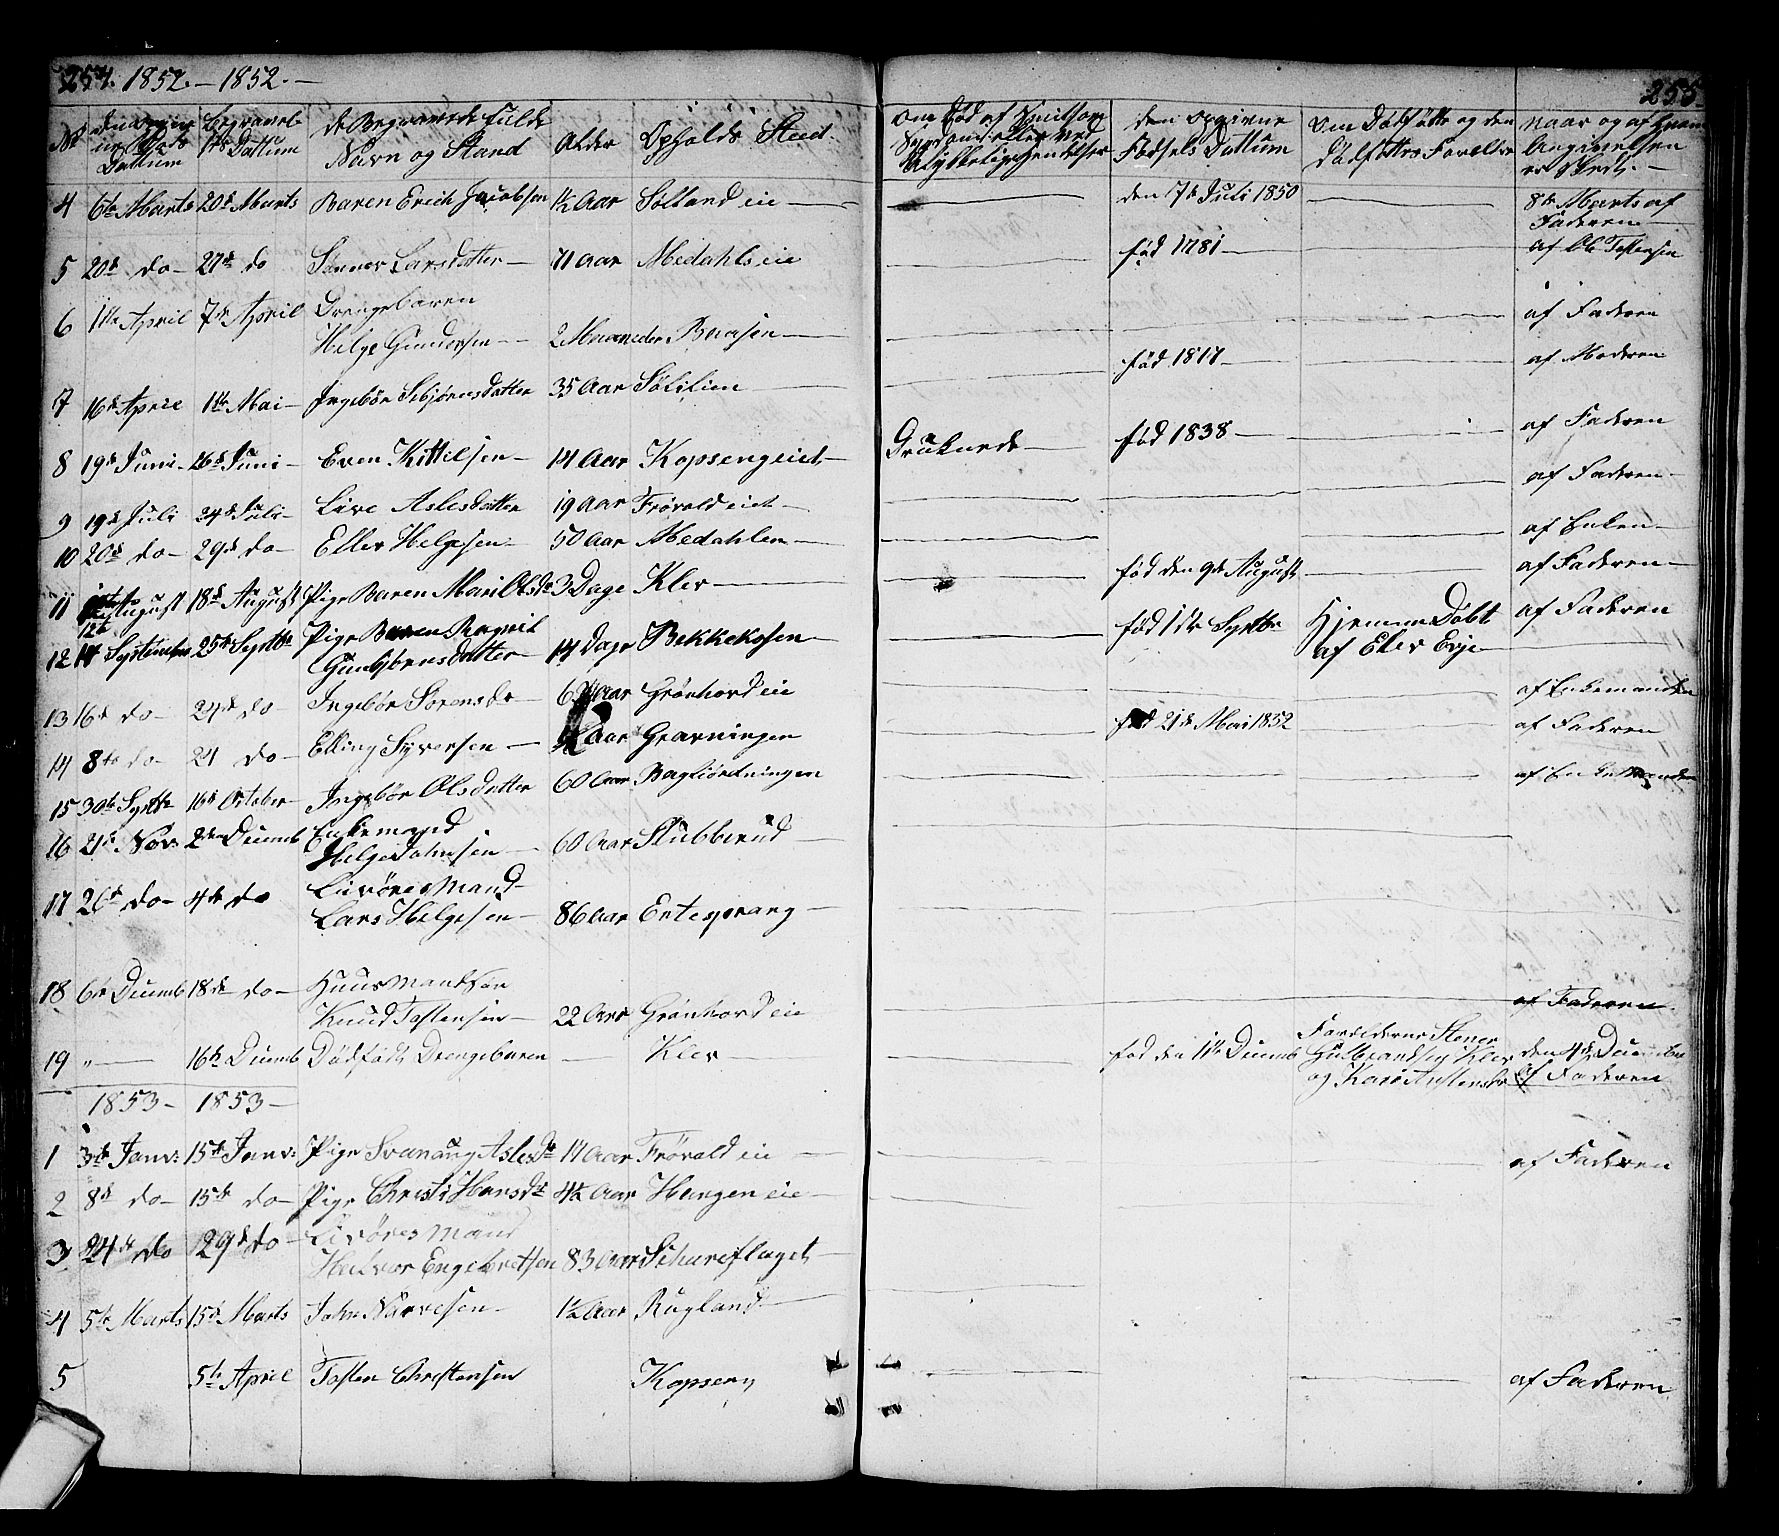 254. 1852. — 1852. — 255.
No Datum Begravels Dattum de Begravede fulde Navn og Stand Alder Opholds Sted om død af Smitsom Sygdom eller ved Ulykkelig hændelser den opgivne Fødsels Dattum om Dødføtte og den dødføttes Forelldre naar og af hvem Angivelsen er skeet. —
4 6te Marts 20de Marts Baren Erich Jacobsen 1½ Aar Sølland eie — den 7de Juli 1850 — 8de Marts af Faderen —
5 20de do — 27de do Larsdatter — 71 Aar Medahls eie — fød 1781 — af Ole Tostensen
6 1ste April 7de April Drengebaren
Helge Gundersen — 2 Maaneder Baasen — af Faderen
7 16de April 1ste Mai — Ingebør Sebjørnsdatter 35 Aar Sølilien — fød 1817 — af Moderen
8 19de Juni — 26de Juni — Even Kittilsen — 14 Aar Kopsengeiet — fød 1838 — af Faderen
9 19de Juli 24de Juli — Live Aslesdatter 19 Aar Frøvold eiet — af Faderen —
10 20de do — 29de do — Eller Helgesen — 50 Aar Medahlen — af Enken —
11 August 18de August Pige Baren Mari Olsdr 3 Dage Klev — fød den 9de August — af Faderen —
12te
12 September 25de Septbr Pige Baren Ragnil
Gunbjørnsdatter — 14 Dage Bekkekosen — fød 1ste Septbr Hjemme Døbt
af Elev Evje — af Faderen
13 16de do — 24de do Ingebør Sorensdr — Aar Grønhovd eie — af Enkemanden
14 8de do — 21 do — Elling Syversen — Aar Gravningen fød 21de Mai 1852 af Faderen
15 30te Septbr 16de October — Ingebør Olsdatter 60 Aar — af Enkemanden
16 21de Nov: 2den Decemb Enkemand
Helge Johnsen — 60 Aar Slubberud —
17 26de do — 4de do Livøres Mand —
Lars Helgesen — 86 Aar Entesprang —
18 6te Decemb 18de do — Huusmandsøn
Knud Tostensen — 22 Aar Grønhovd eie — af Faderen
19 " — 16de Decemb Dødfødt Drengebaren — Klev — fød den 1ste Decemb Foreldrene Stener
Gulbrandsen Klev
og Kari den 4de December
af Faderen
1853 — 1853 —
1 3de Janv: 15de Janv: Pige Svanaug Aslesdr 17 Aar Frøvold eie — af Faderen
2 8de do — 15de do — Pige Christi Hansdr 4½ Aar Haugen eie —
3 24de do 29de do — Livøres Mand
Halvor Engebretsen 83 Aar
4 5te Marts 15de Marts John Narvesen — 1½ Aar Rugland —
5 5te April Tosten Christensen Kopseng — af Faderen